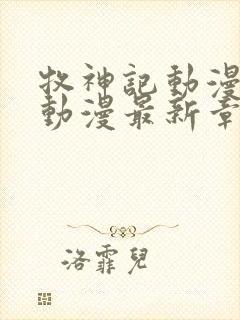 牧神記動漫
動漫最新章
洛霏兒